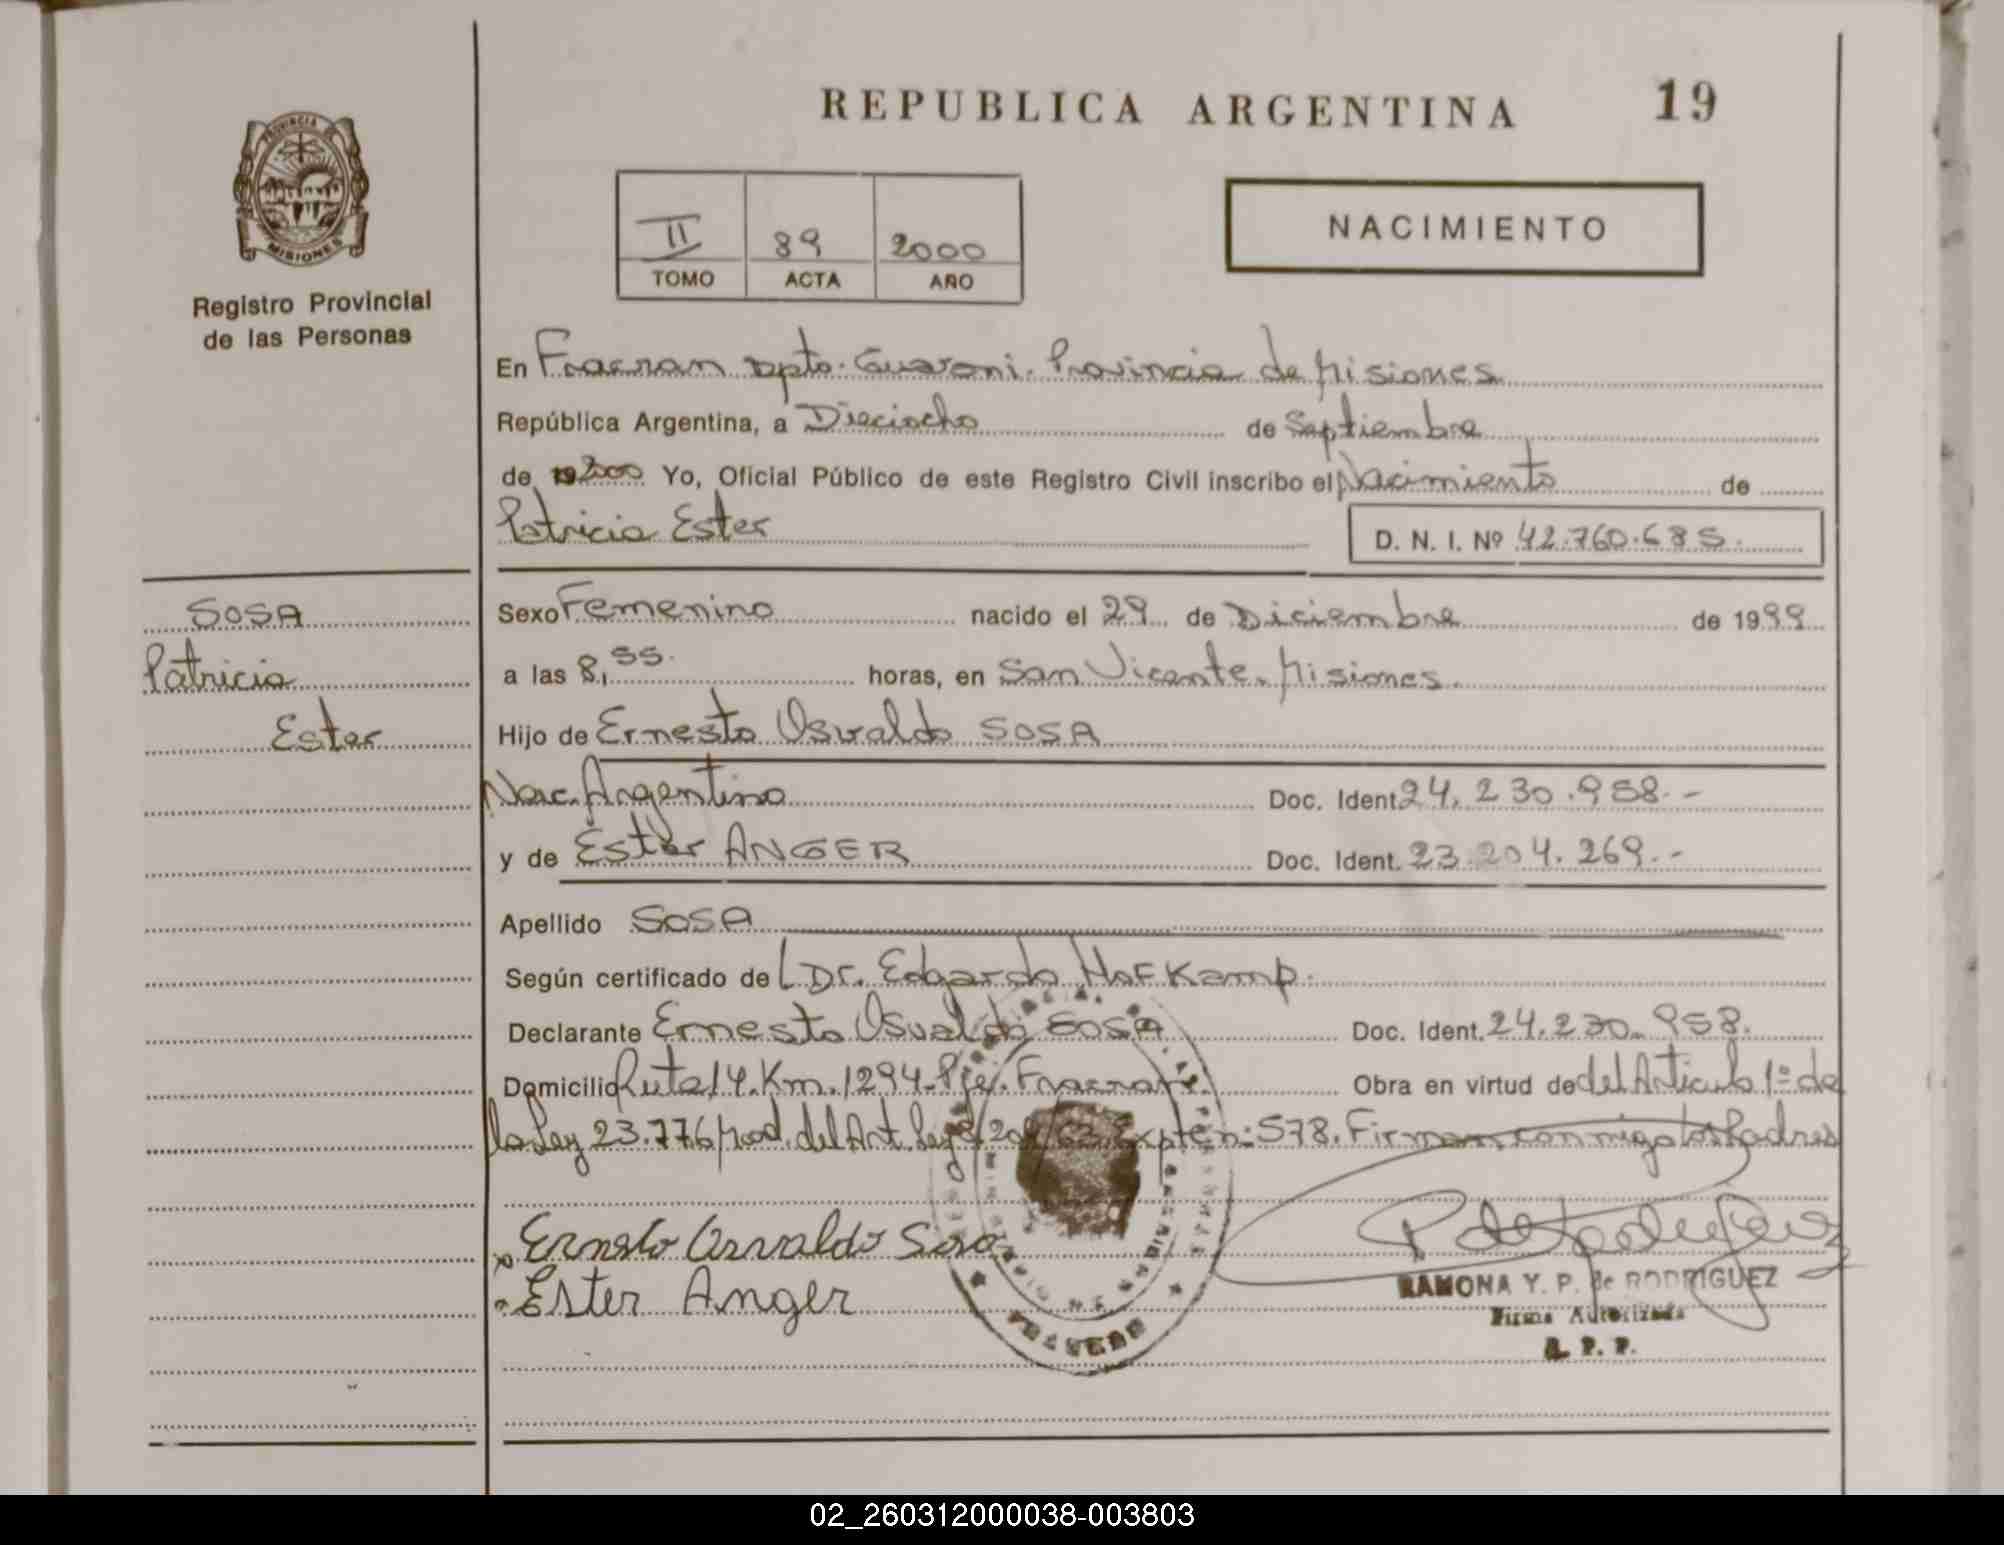 REPUBLICA ARGENTINA 19
PROVINCIA DE
MISIONES
Registro Provincial
de las Personas
II 89 2000
TOMO ACTA AÑO
NACIMIENTO
En Fracran Dpto. Guarani. Provincia de Misiones
República Argentina, a Dieciocho de Septiembre
de 2000 Yo, Oficial Público de este Registro Civil inscribo el Nacimiento de
Patricia Ester D. N. I. Nº 42.760.685.
SOSA
Patricia
Ester
Sexo Femenino nacido el 29 de Diciembre de 1999
a las 8,55. horas, en San Vicente. Misiones.
Hijo de Ernesto Osvaldo SOSA
Nac. Argentino Doc. Ident. 24.230.958.-
y de Ester ANGER Doc. Ident. 23.204.269.-
Apellido SOSA
Según certificado de Dr. Edgardo Hofkamp.
Declarante Ernesto Osvaldo SOSA Doc. Ident. 24.230.958.
Domicilio Ruta 14. Km. 1294. Pje. Fracran. Obra en virtud de del Articulo 1º de
la Ley 23.776 mod. del Art. Ley Expte n: 578. Firman conmigo los Padres
Ernesto Osvaldo Sosa
Ester Anger
RAMONA Y. P. de RODRIGUEZ
Firma Autorizada
R. P. P.
02_260312000038-003803